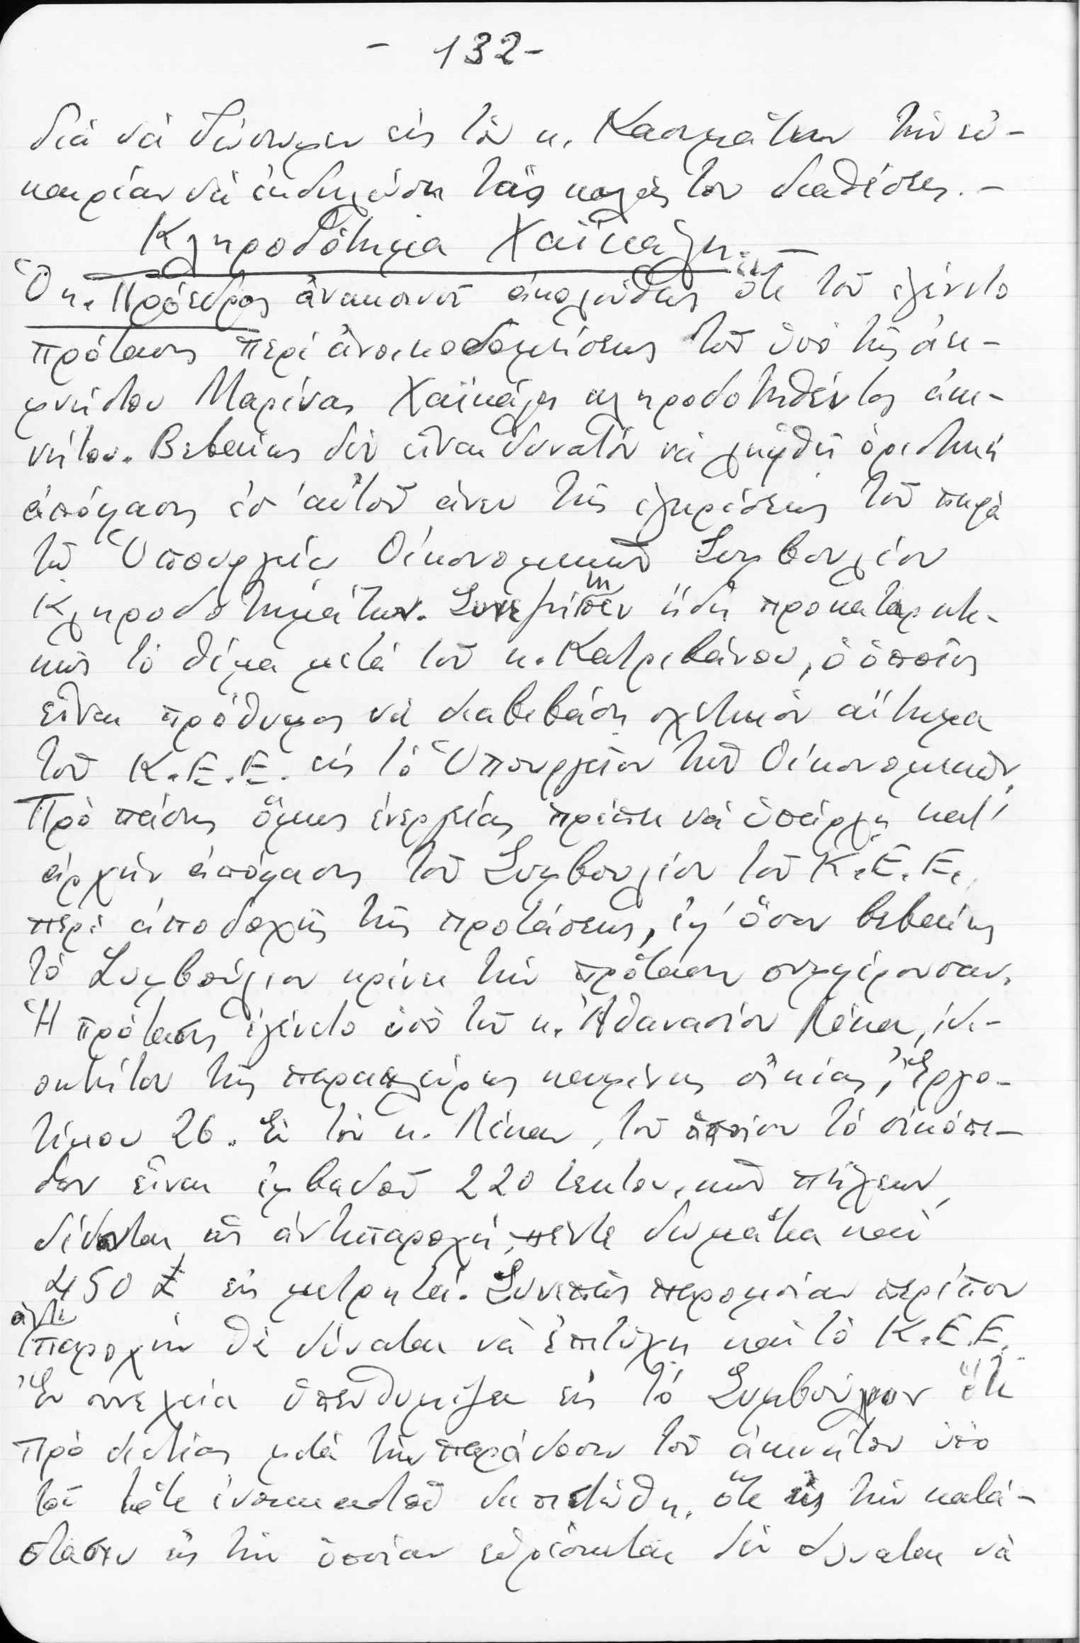 - 132 -
διὰ νὰ δώσωμεν εἰς τὸν κ. Κασιμάτην τὴν εὐ-
καιρίαν νὰ ἐκδηλώση τὰς καλάς του διαθέσεις. -
Κληροδότημα Χαϊκάλη. -
Ὁ κ. Πρόεδρος ἀνακοινοῖ ἀκολούθως ὅτι τοῦ ἐγένετο
πρότασις περὶ ἀνοικοδομήσεως τοῦ ὑπὸ τῆς ἀει-
μνήστου Μαρίνας Χαϊκάλη κληροδοτηθέντος ἀκι-
νήτου. Βεβαίως δὲν εἶναι δυνατὸν νὰ ληφθῆ ὁριστικὴ
ἀπόφασις ἐπ' αὐτοῦ ἄνευ τῆς ἐγκρίσεως τοῦ παρὰ
τῷ Ὑπουργείῳ Οἰκονομικῶν Συμβουλίου
Κληροδοτημάτων. Συνεζήτησεν ἤδη προκαταρκτι-
κῶς τὸ θέμα μετὰ τοῦ κ. Κατριβάνου, ὁ ὁποῖος
εἶναι πρόθυμος νὰ διαβιβάση σχετικὸν αἴτημα
τοῦ Κ.Ε.Ε. εἰς τὸ Ὑπουργεῖον τῶν Οἰκονομικῶν.
Πρὸ πάσης ὅμως ἐνεργείας πρέπει νὰ ὑπάρχη κατ'
ἀρχὴν ἀπόφασις τοῦ Συμβουλίου τοῦ Κ.Ε.Ε.
περὶ ἀποδοχῆς τῆς προτάσεως, ἐφ' ὅσον βεβαίως
τὸ Συμβούλιον κρίνει τὴν πρότασιν συμφέρουσαν.
Ἡ πρότασις ἐγένετο ὑπὸ τοῦ κ. Ἀθανασίου Λέκα, ἰδι-
οκτήτου τῆς παραπλεύρως κειμένης οἰκίας, Ἐργο-
τίμου 26. Εἰς τὸν κ. Λέκαν, τοῦ ὁποίου τὸ οἰκόπε-
δον εἶναι ἐμβαδοῦ 220 τεκτον.κῶν πήχεων,
δίδονται ὡς ἀντιπαροχὴ πέντε δωμάτια καὶ
450 £ εἰς μετρητά. Συνεπῶς παρομοίαν περίπου
ἀντιπαροχὴν θὰ δύναται νὰ ἐπιτύχη καὶ τὸ Κ.Ε.Ε.
Ἐν συνεχείᾳ ὑπενθυμίζει εἰς τὸ Συμβούλιον ὅτι
πρὸ διετίας μετὰ τὴν παράδοσιν τοῦ ἀκινήτου ὑπὸ
τοῦ τότε ἐνοικιαστοῦ διεπιστώθη, ὅτι εἰς τὴν κατά-
στασιν εἰς τὴν ὁποίαν εὑρίσκεται δὲν δύναται νὰ